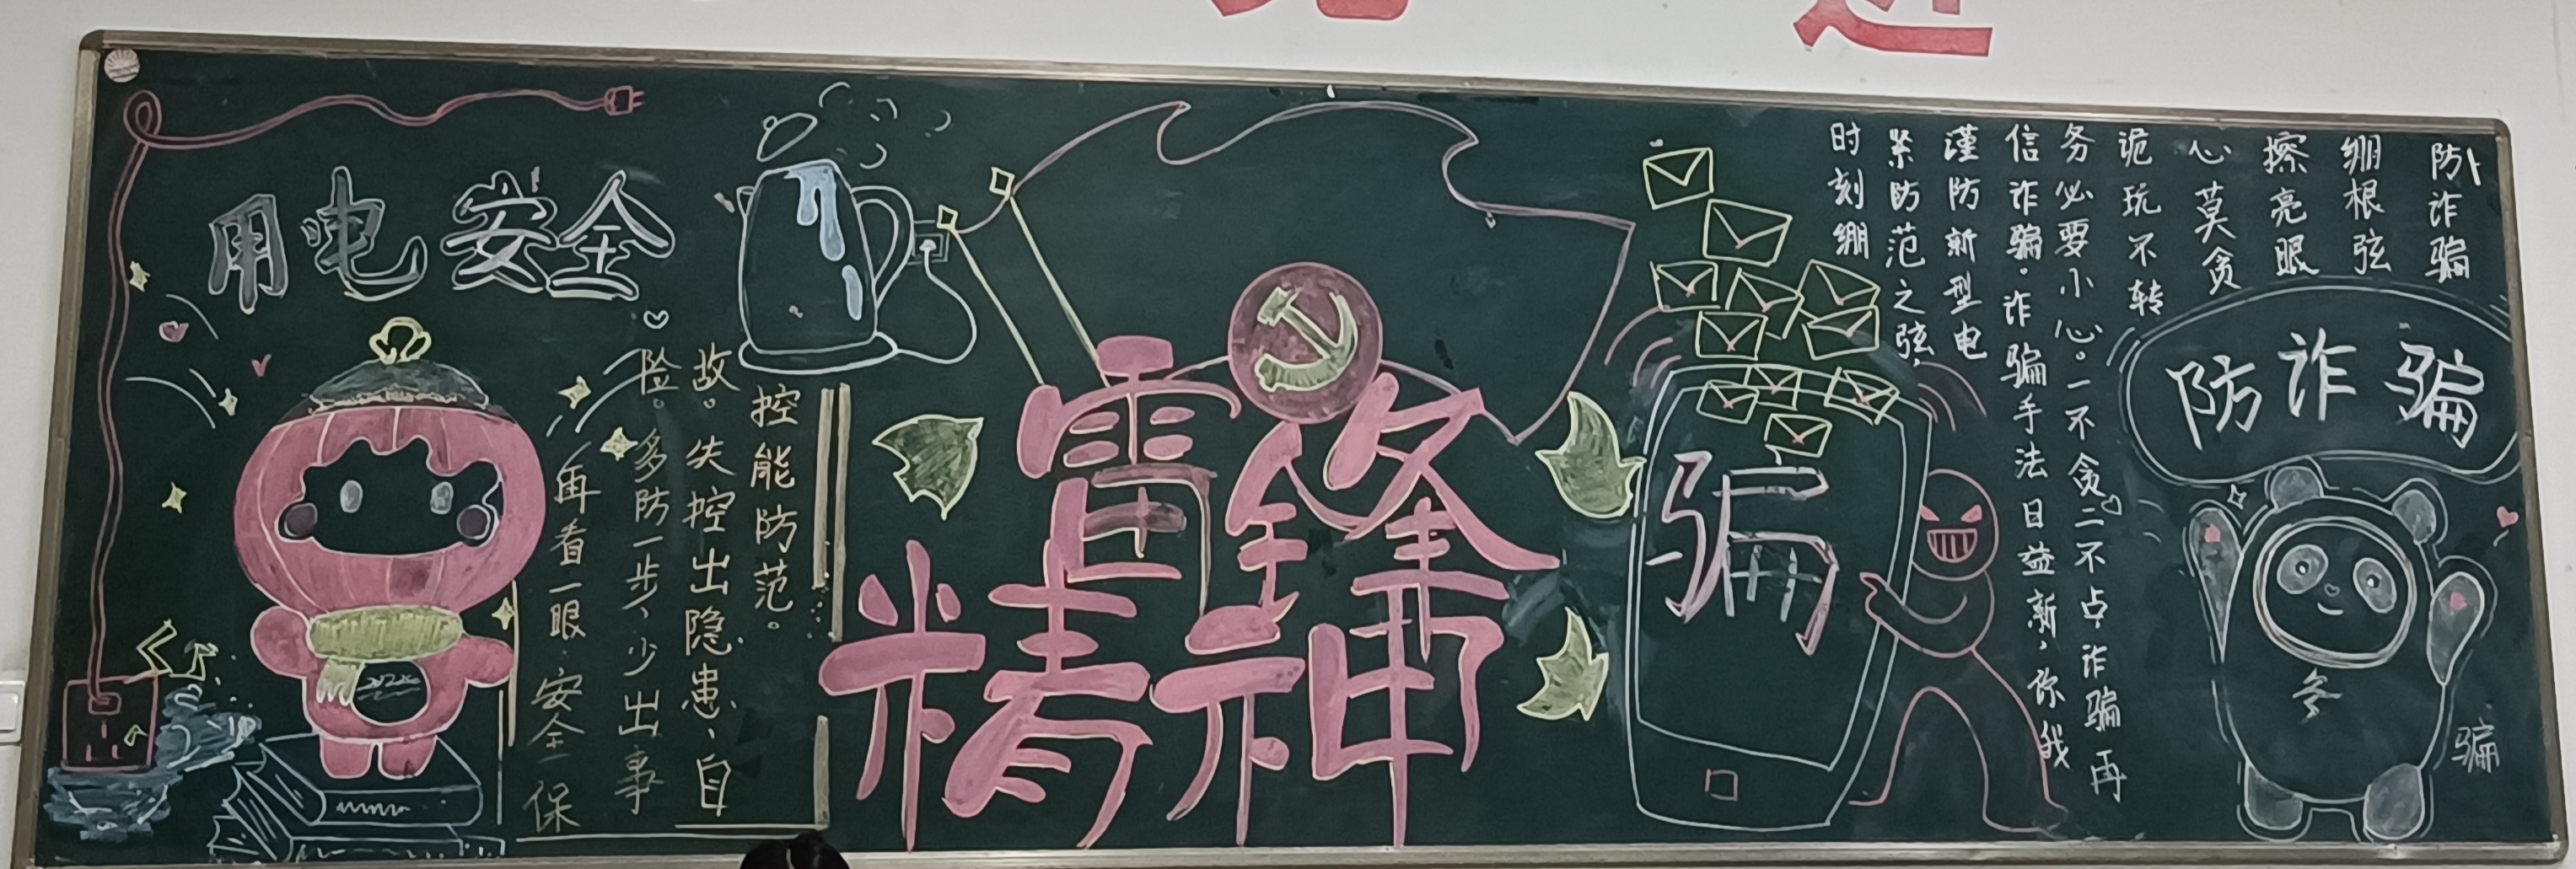 用电安全
再看一眼.安全保
险。多防一步、少出事
故。失控出隐患、自
控能防范。
雷锋
精神
骗
时刻绷
紧防范之弦，
谨防新型电
信诈骗。诈骗手法日益新，你我
务必要小心。一不贪二不占诈骗再
诡玩不转
心莫贪
擦亮眼
绷根弦
防诈骗
防诈骗
冬
骗